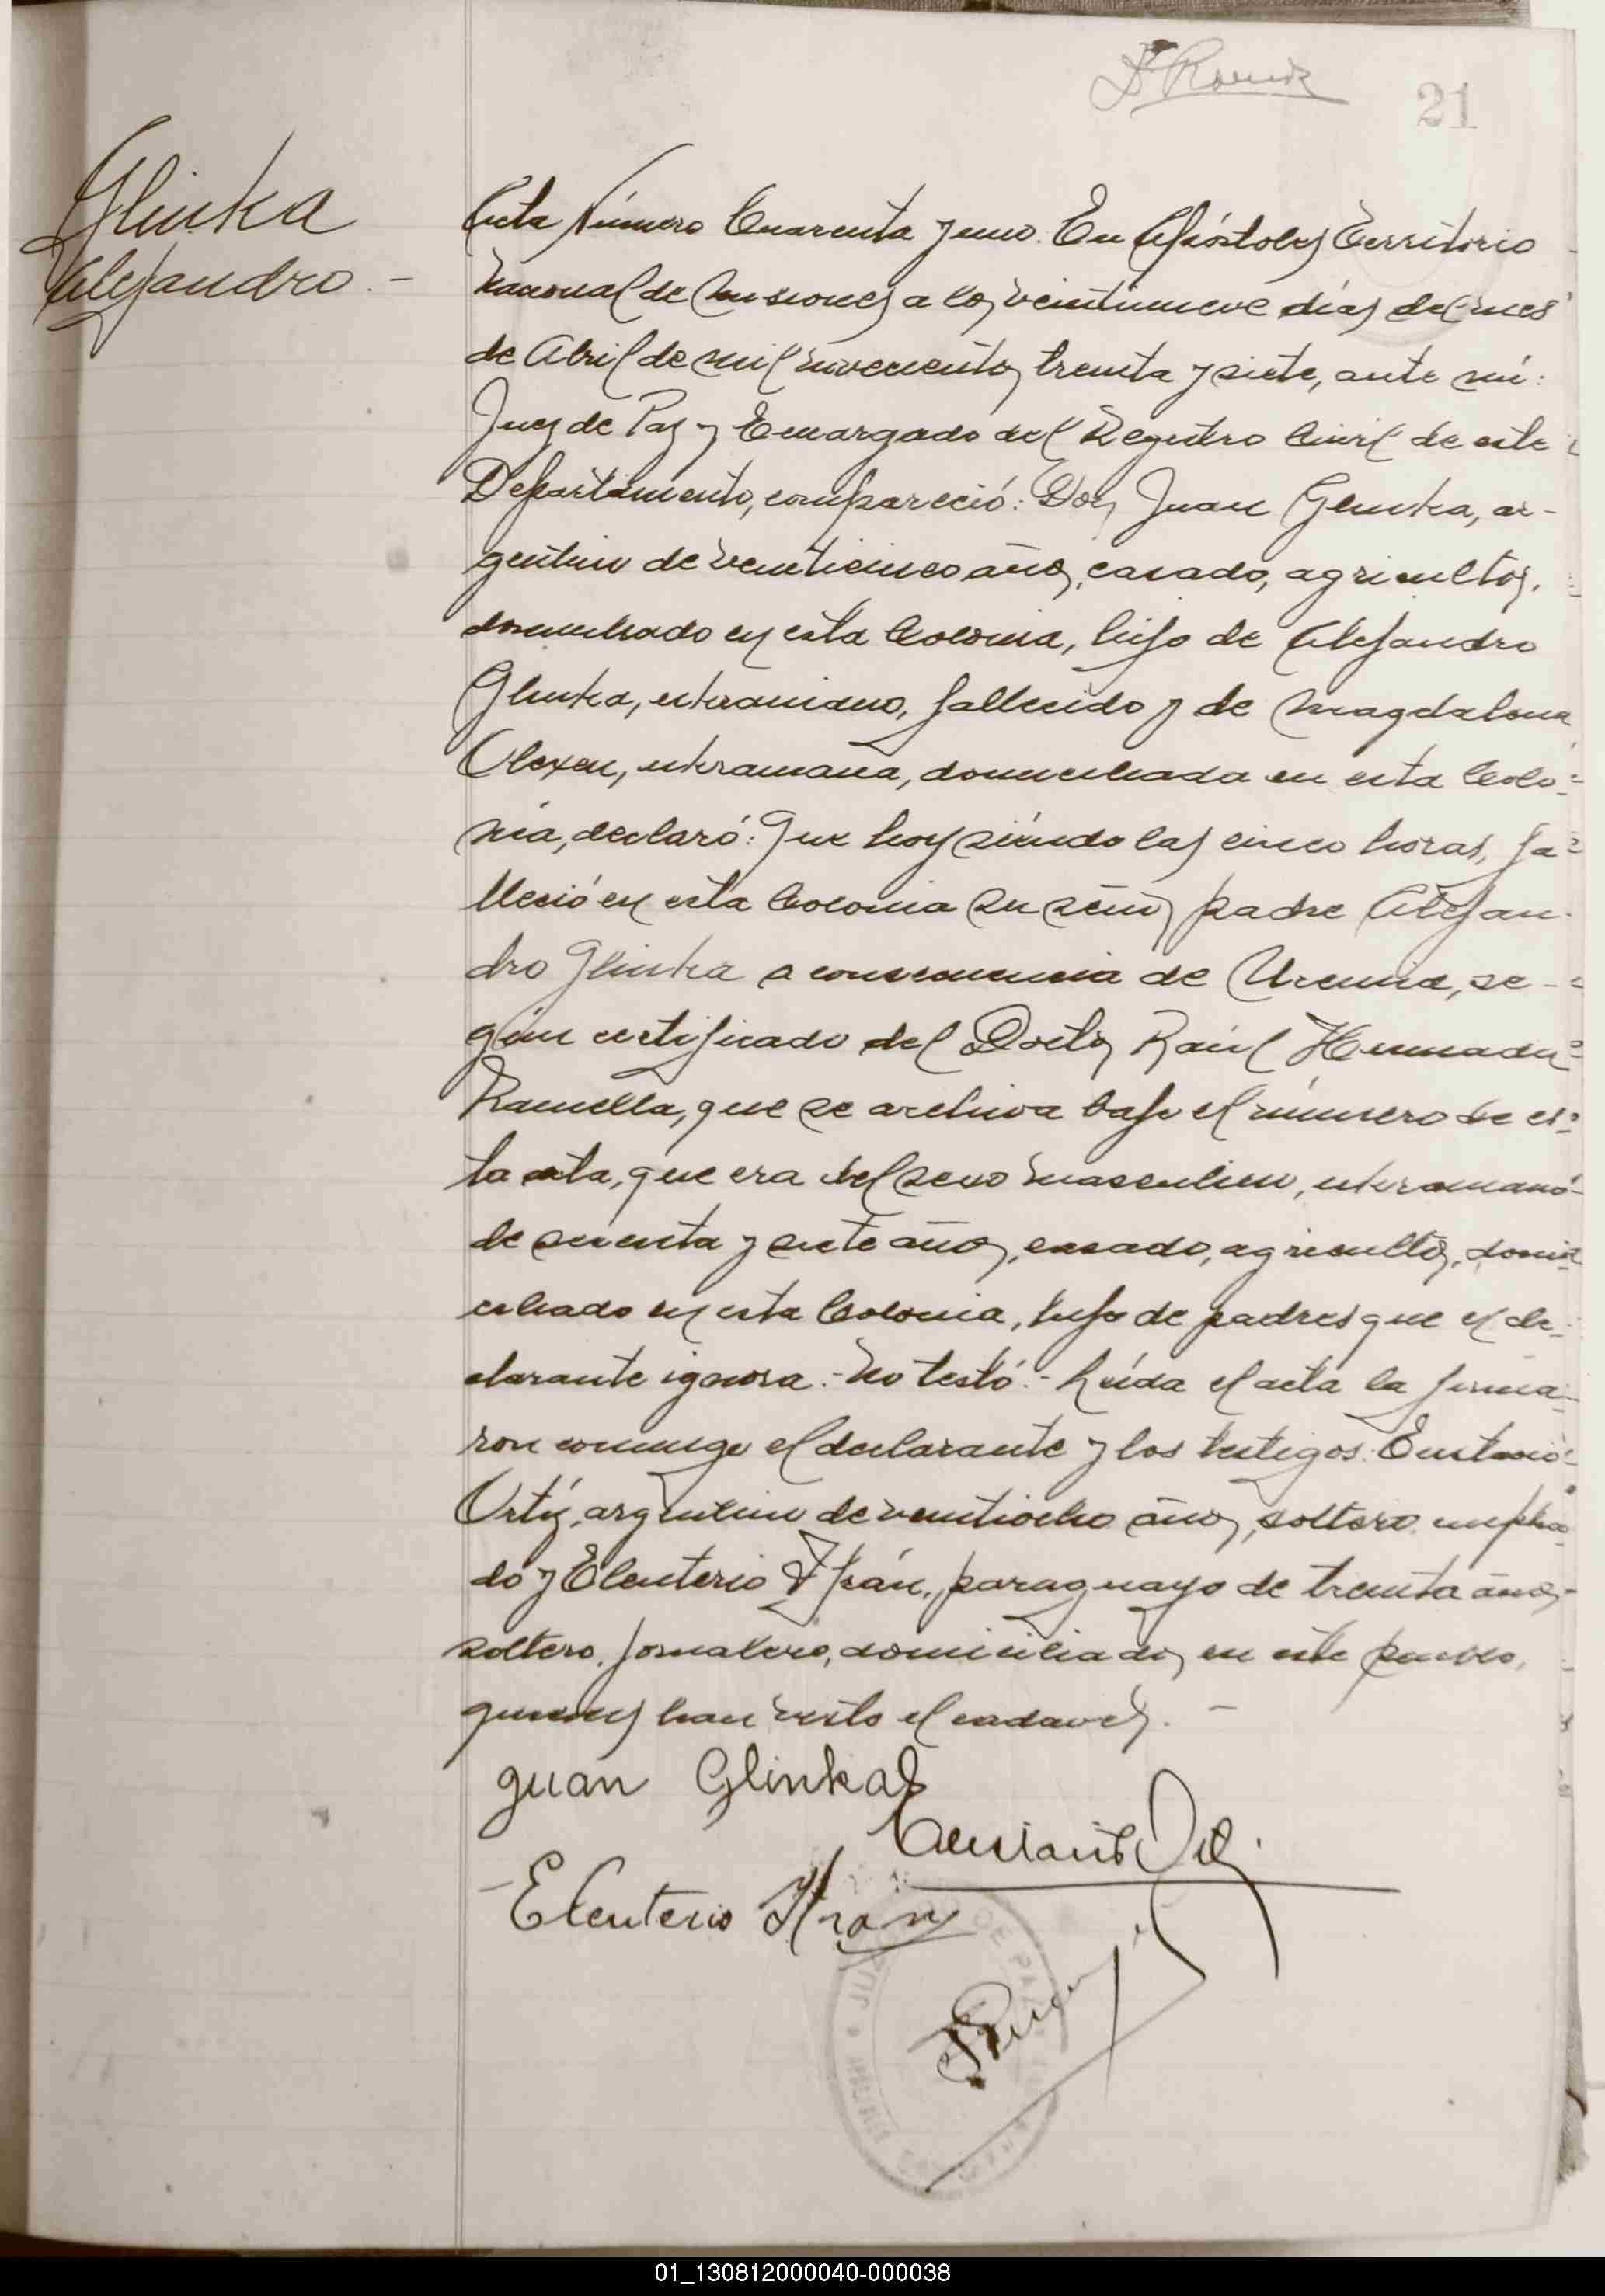 21
Glinka
Alejandro.-
Acta Número Cuarenta y uno. En Apóstoles Territorio
Nacional de Misiones a los veintinueve días del mes
de Abril de mil novecientos treinta y siete, ante mí:
Juez de Paz y Encargado del Registro Civil de este
Departamento, compareció: Don Juan Glinka, ar-
gentino de veinticinco años, casado, agricultor,
domiciliado en esta Colonia, hijo de Alejandro
Glinka, ukraniano, fallecido y de Magdalena
Olexen, ukraniana, domiciliada en esta Colo-
nia, declaró: Que hoy siendo las cinco horas, fa-
lleció en esta Colonia su señor padre Alejan-
dro Glinka a consecuencia de Uremia, se-
gún certificado del Doctor Raúl
Ramella, que se archiva bajo el número de es-
ta acta, que era del sexo masculino, ukraniano
de y siete años, casado, agricultor, domi-
ciliado en esta Colonia, hijo de padres que el de-
clarante ignora.- No testó.- Leída el acta la firma-
ron conmigo el declarante y los testigos: Eustacio
Ortíz, argentino de veintiocho años, soltero, emplea-
do y Eleuterio Yfrán, paraguayo de treinta años,
soltero, jornalero, domiciliados en este pueblo,
quienes han visto el cadaver.-
Juan Glinka
Eleuterio Yfran
JUZ DE PAZ
01_130812000040-000038